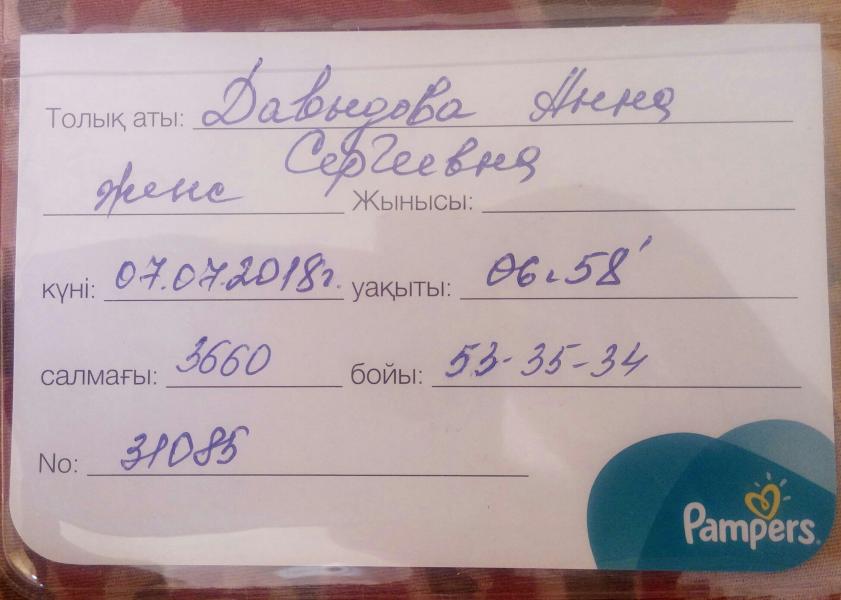 Толық аты: Давыдова Анна
Сергеевна
женс Жынысы:
күні: 07.07.2018г. уақыты: 06ч58'
салмағы: 3660 бойы: 53-35-34
No: 31085
Pampers.